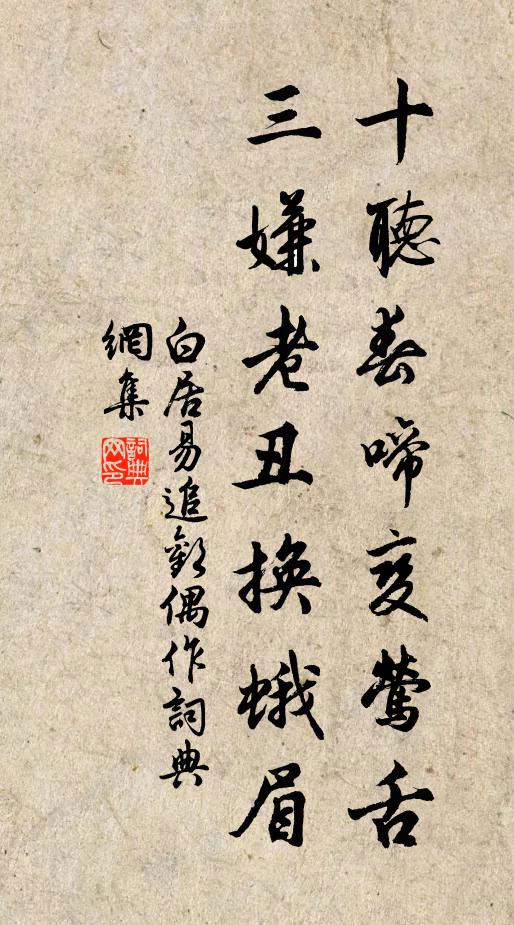 十聽春啼變鶯舌
三嫌老丑換蛾眉
白居易追歡偶作詞典
網集
詞典網印